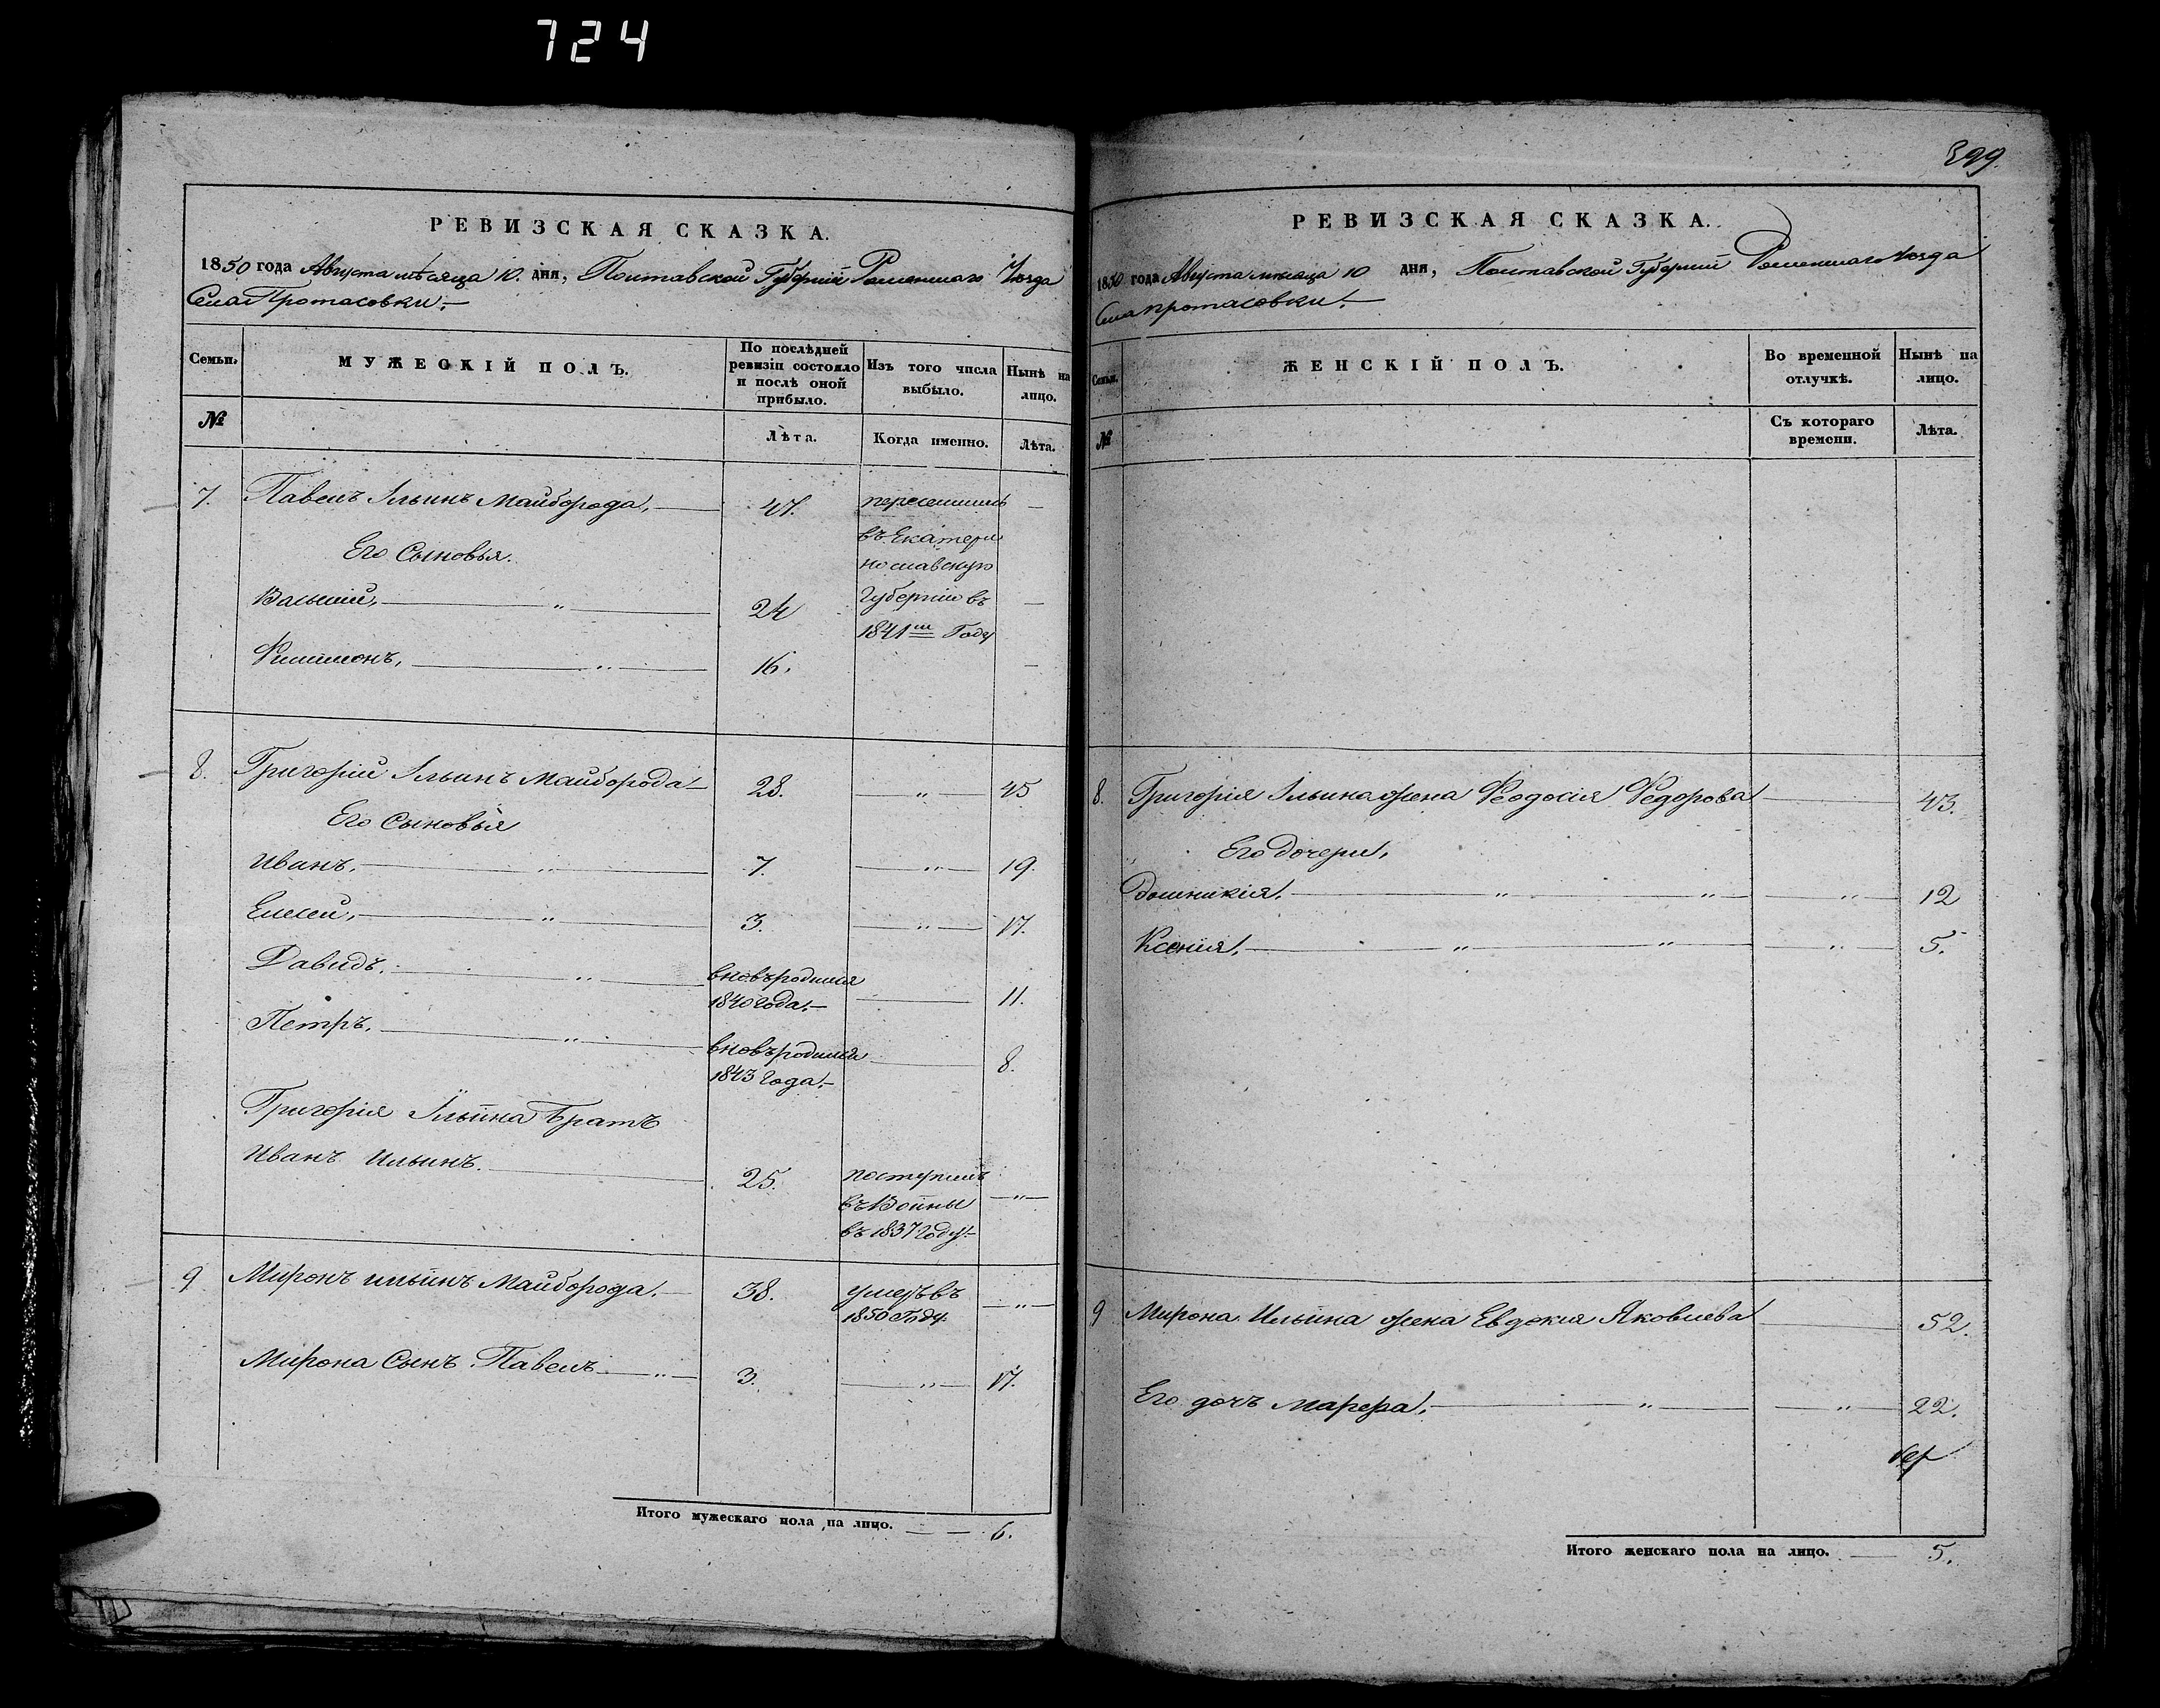 724
РЕВИЗСКАЯ СКАЗКА.
1850 года Августа мѣсяца 10. дня, Полтавской Губерніи Роменшаго Уѣзда
Села Протасовки.
Семьи.
МУЖЕСКІЙ ПОЛЪ.
По послѣдней ревизіи состояло и послѣ оной прибыло.
Изъ того числа выбыло.
Нынѣ на лицо.
№
Лѣта.
Когда именно.
Лѣта.
7. Павелъ Ильинъ Майборода, 47. переселились
въ Екатери
Его Сыновья.
нославскую
Василій, " 24 Губернію въ
1841мъ Году
Филимонъ, " 16.
8. Григорій Ильинъ Майборода 28. " 45
Его Сыновья
Иванъ. " 7. " 19.
Елисей, " 3. " 17.
Давидъ. " вновьродился
1840 года. 11.
Петръ. " вновьродился
1843 года. 8.
Григорія Ильина Братъ
Иванъ Ильинъ. 25. поступилъ "
въ Воины
въ 1837 году.
9 Миронъ Ильинъ Майборода. 38. умеръ въ "
1850 Году.
Мирона Сынъ Павелъ " 3. " 17.
Итого мужескаго пола на лицо. 6.
399.
РЕВИЗСКАЯ СКАЗКА.
1850 года Августа мѣсяца 10 дня, Полтавской Губерніи Роменшаго Уѣзда
Села Протасовки.
Семьи.
ЖЕНСКІЙ ПОЛЪ.
Во временной отлучкѣ.
Нынѣ на лицо.
№
Съ котораго времени.
Лѣта.
8. Григорія Ильина жена Феодосія Федорова 43.
Его дочери,
Домникія. " " " 12
Ксенія. " " " 5.
9 Мирона Ильина жена Евдокия Яковлева 52.
Его дочь Марѳа. " " 22.
Итого женскаго пола на лицо. 5.